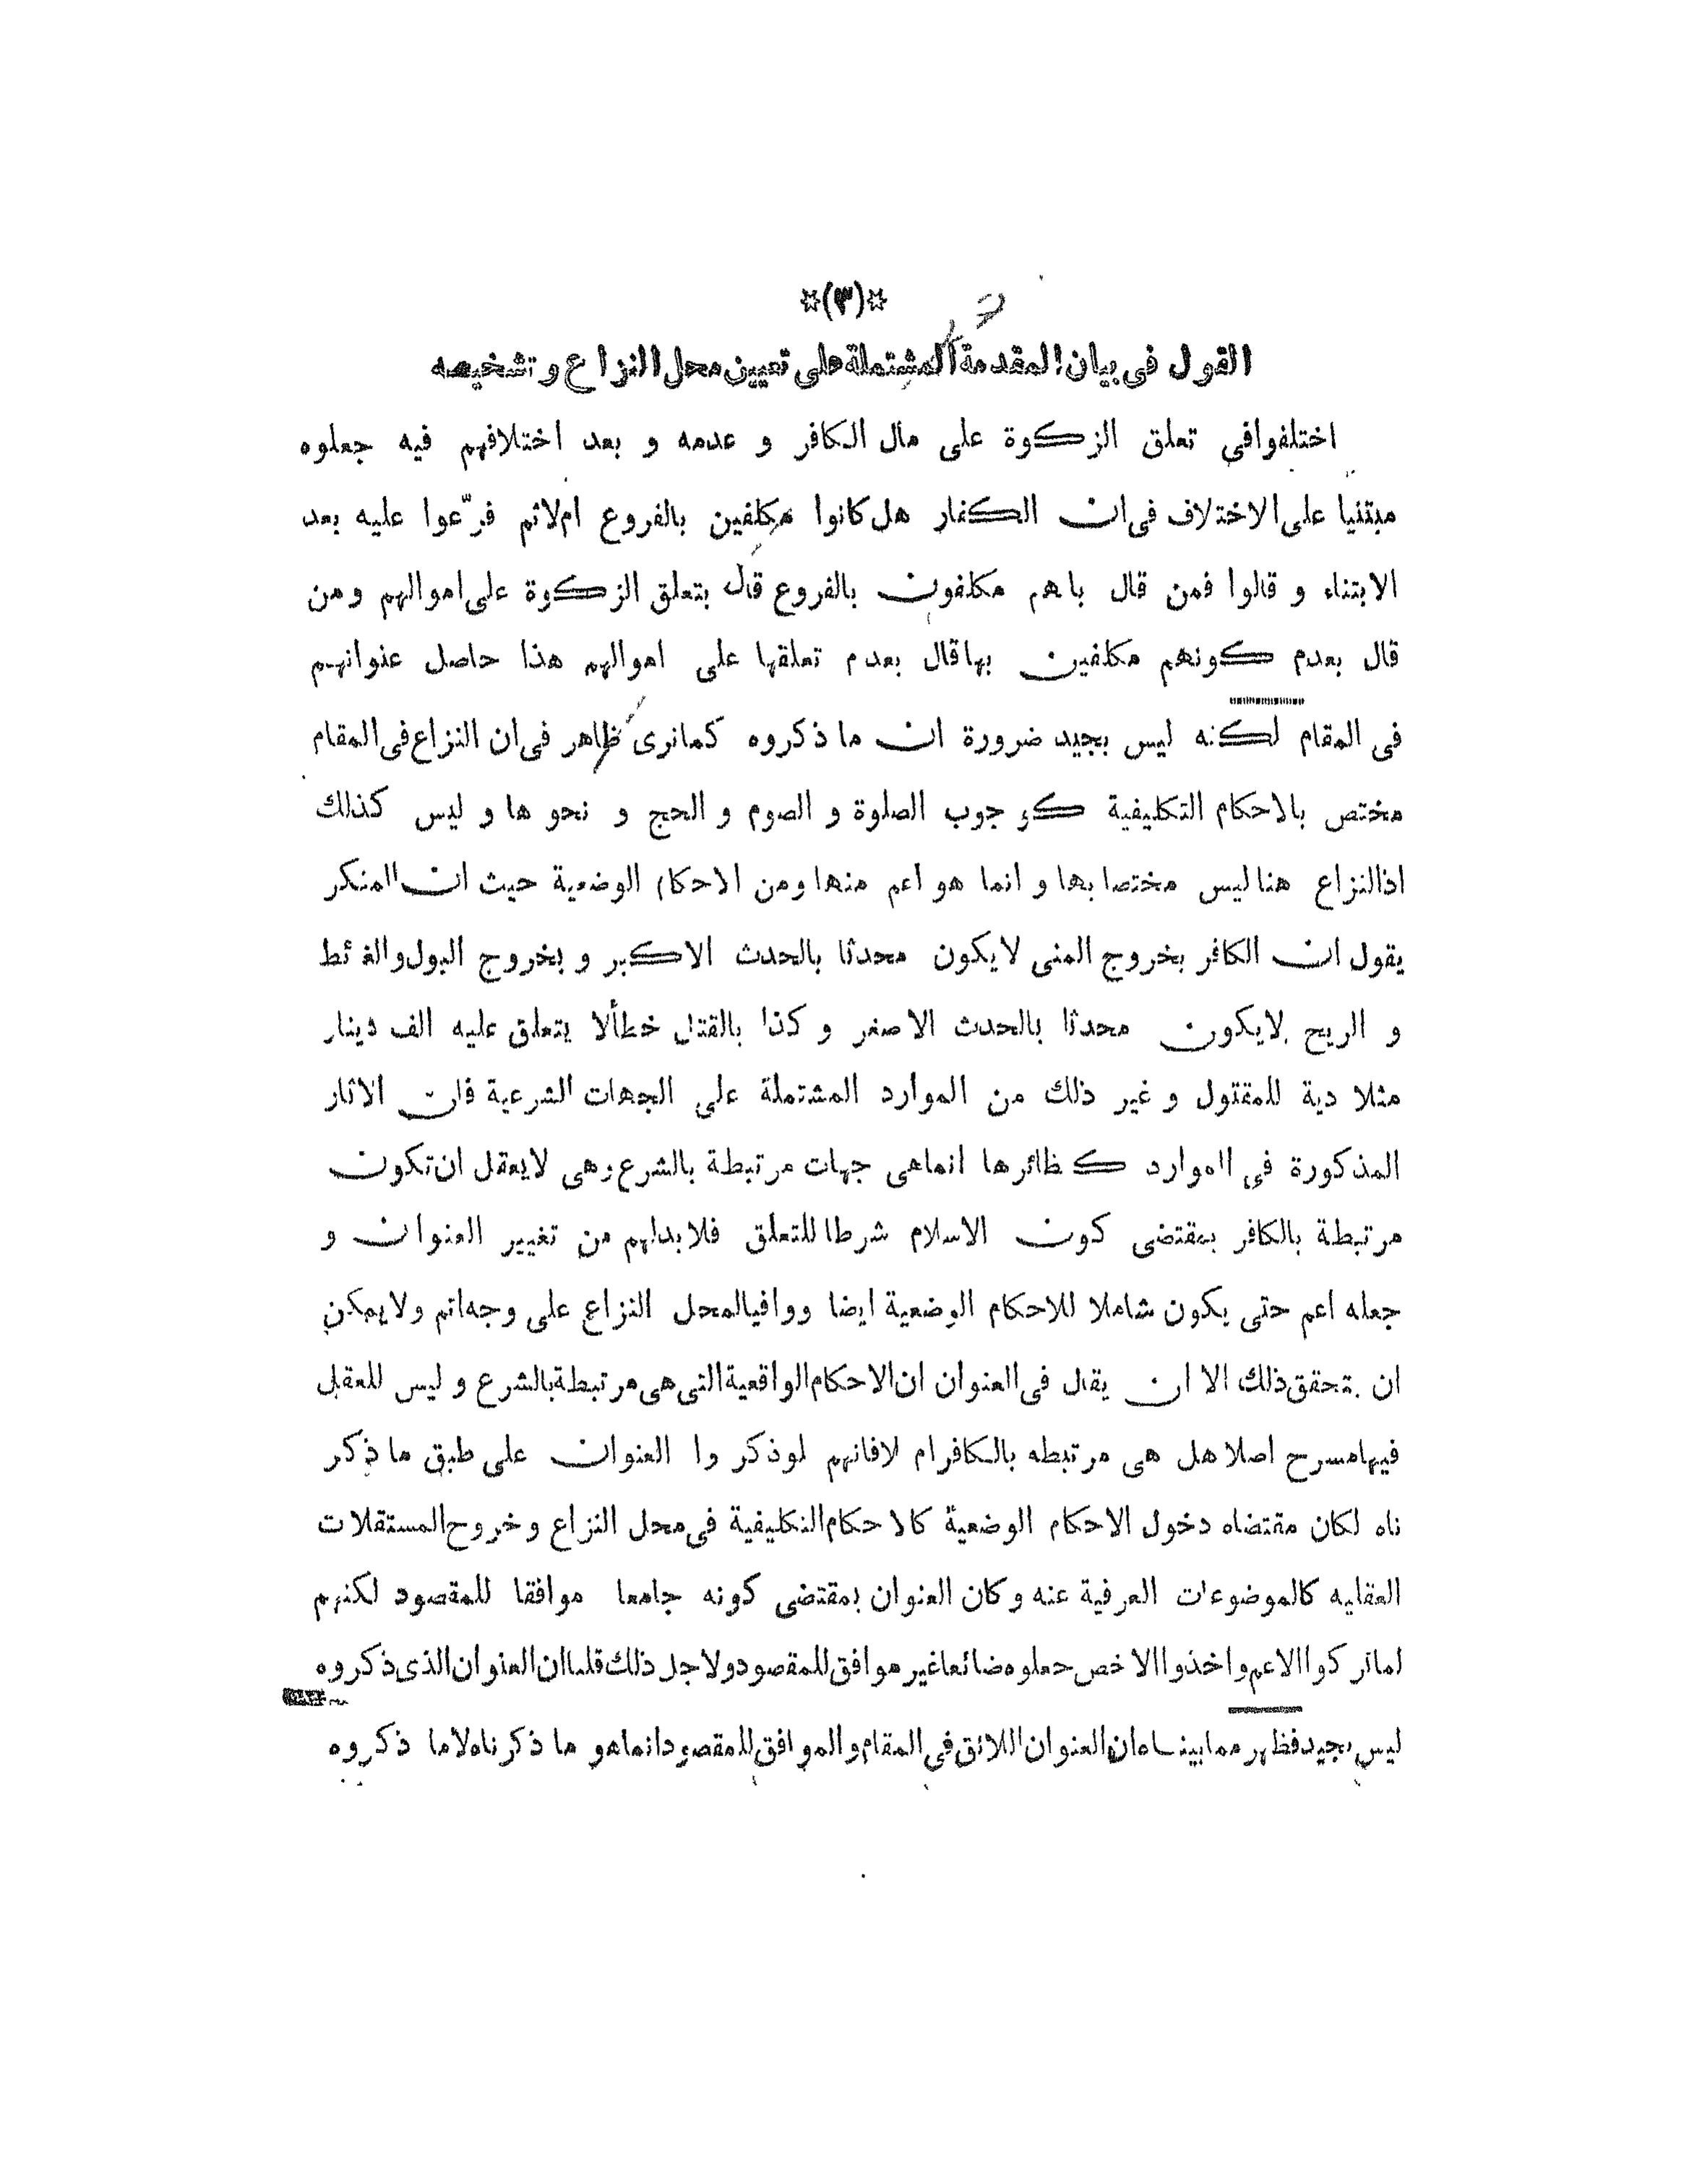 ☆(٣)☆
القول فى بيان المقدمة المشتملة على تعيين محل النزاع و تشخيصه
اختلفوا فى تعلق الزكوة على مال الكافر و عدمه و بعد اختلافهم فيه جعلوه
مبتنيا على الاختلاف فى ان الكفار هل كانوا مكلفين بالفروع ام لا ثم فرّعوا عليه بعد
الابتناء و قالوا فمن قال باهم مكلفون بالفروع قال بتعلق الزكوة على اموالهم ومن
قال بعدم كونهم مكلفين بها قال بعدم تعلقها على اموالهم هذا حاصل عنوانهم
فى المقام لكنه ليس بجيد ضرورة ان ما ذكروه كما نرى ظاهر فى ان النزاع فى المقام
مختص بالاحكام التكليفية كو جوب الصلوة و الصوم و الحج و نحو ها و ليس كذلك
اذ النزاع هنا ليس مختصا بها و انما هو اعم منها ومن الاحكام الوضعية حيث ان المنكر
يقول ان الكافر بخروج المنى لا يكون محدثا بالحدث الاكبر و بخروج البول والغ ئط
و الريح لا يكون محدثا بالحدث الاصغر و كذا بالقتل خطألا يتعلق عليه الف دينار
مثلا دية للمقتول و غير ذلك من الموارد المشتملة على الجهات الشرعية فان الاثار
المذكورة فى الموارد كـ ظائرها انما هى جهات مرتبطة بالشرع وهى لا يعقل ان تكون
مرتبطة بالكافر بمقتضى كون الاسلام شرطا للتعلق فلابدلهم من تغيير العنوان و
جعله اعم حتى يكون شاملا للاحكام الوضعية ايضا ووافيالمحل النزاع على وجه اتم ولا يمكن
ان يتحقق ذلك الا ان يقال فى العنوان ان الاحكام الواقعية التى هى مرتبطة بالشرع و ليس للعقل
فيها مسرح اصلا هل هى مرتبطه بالكافر ام لا فانهم لو ذكر وا العنوان على طبق ما ذكر
ناه لكان مقتضاه دخول الاحكام الوضعية كالا حكام التكليفية فى محل النزاع و خروج المستقلات
العقليه كالموضوعات العرفية عنه و كان العنوان بمقتضى كونه جامعا موافقا للمقصود لكنهم
لما تر كوا الاعم واخذوا الاخص جعلوه ضائعا غير موافق للمقصود ولا جل ذلك قلنا ان العنوان الذى ذكروه
ليس بجيد فظهر مما بينـاه ان العنوان اللائق فى المقام والموافق للمقصود انما هو ما ذكر ناه لا ما ذكروه